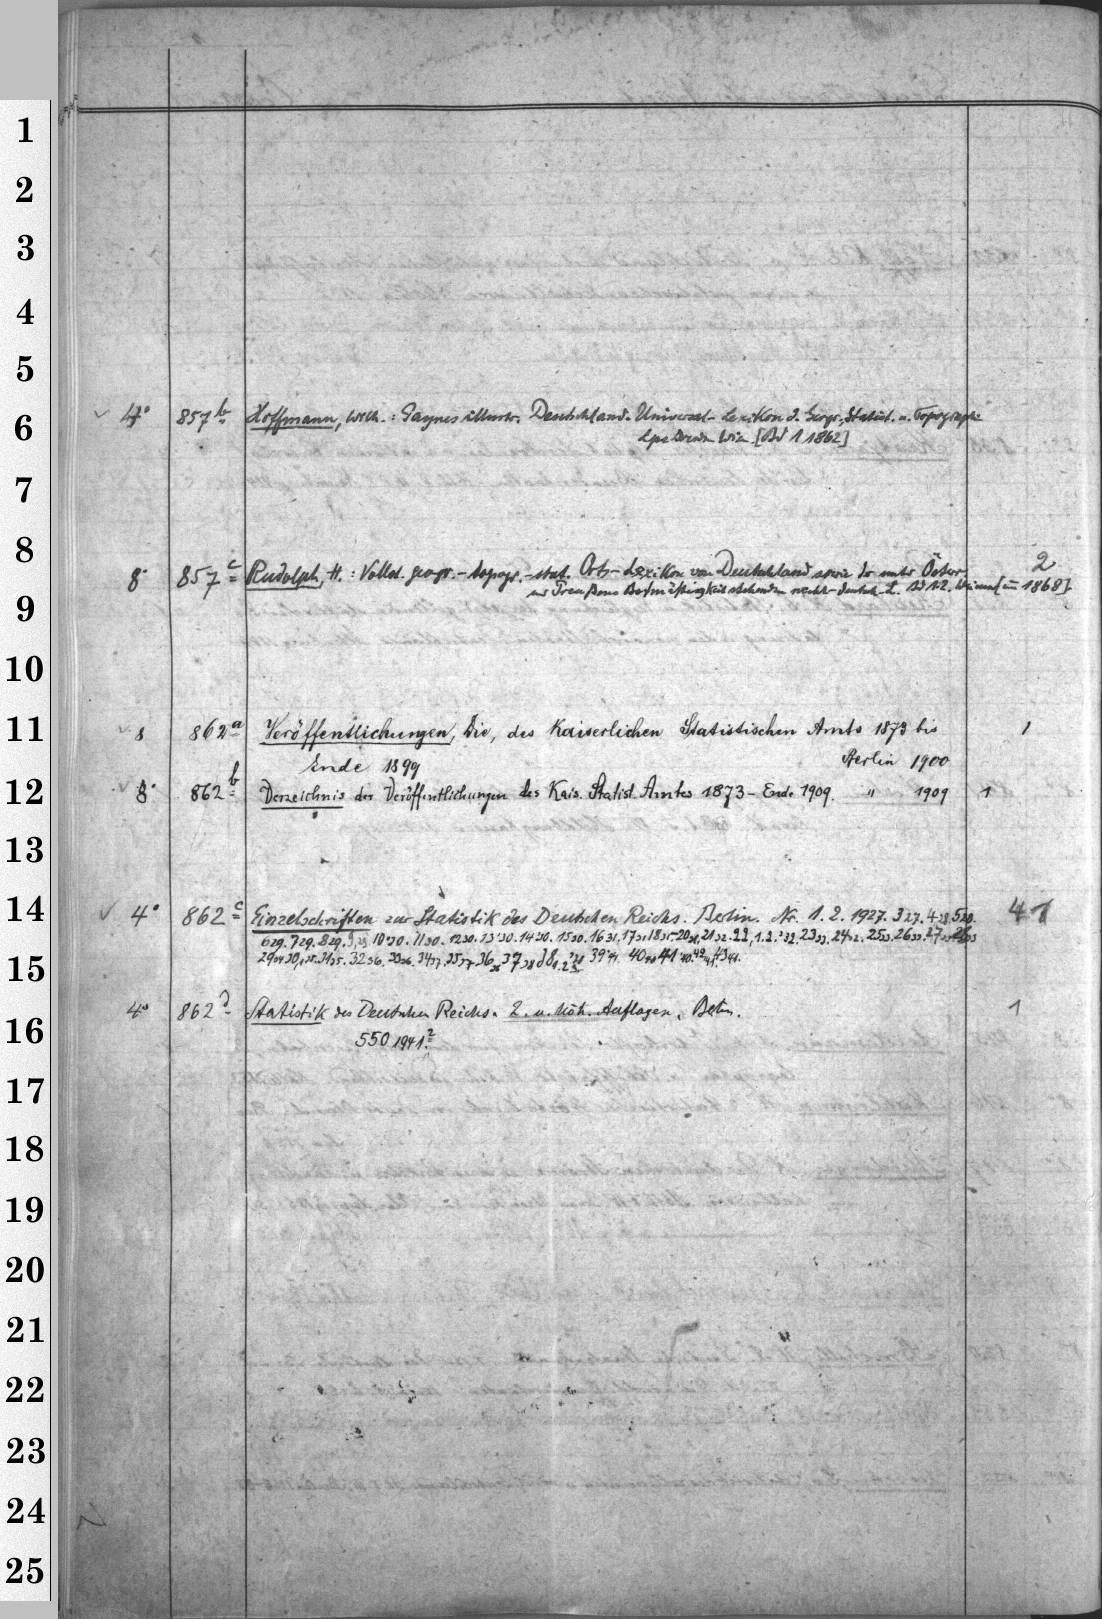 1
2
3
4
5
6
7
8
9
10
11
12
13
14
15
16
17
18
19
20
21
22
23
24
25
4° 857 b Hoffmann, Wilh.: Paynes illustr. Deutschland. Universal-Lexikon d. Geogr., Statist. u. Topographie
Lpz. Dresden Wien [Bd 1 1862]
8° 857 c Rudolph, H.: Vollst. geogr.-topogr.-stat. Orts-Lexikon von Deutschland sowie der unter Öster- 2
u. Preußens Botmäßigkeit stehenden nicht-deutsch. L. Bd 1.2. Weimar [um 1868].
8 862 a Veröffentlichungen, Die, des Kaiserlichen Statistischen Amts 1873 bis 1
Ende 1899 Berlin 1900
8° 862 b Verzeichnis der Veröffentlichungen des Kais. Statist. Amtes 1873 - Ende 1909. " 1909 1
4° 862 c Einzelschriften zur Statistik des Deutschen Reichs. Berlin. Nr. 1. 2. 1927. 3 27. 4 28. 5 29. 41
6 29. 7 29. 8 29. 9, 29 10 '30. 11 30. 12 30. 13 '30. 14 30. 15 30. 16 31. 17 31 18 31. 20 31. 21 32. 22, 1.2. '32. 23 33. 24 32. 25 33. 26 33. 27
32 36. 34 37. 35 37. 36 37 38 39 40 41
4° 862 d Statistik des Deutschen Reichs. 2. u. höh. Auflagen. Berlin. 1
550 1941 2